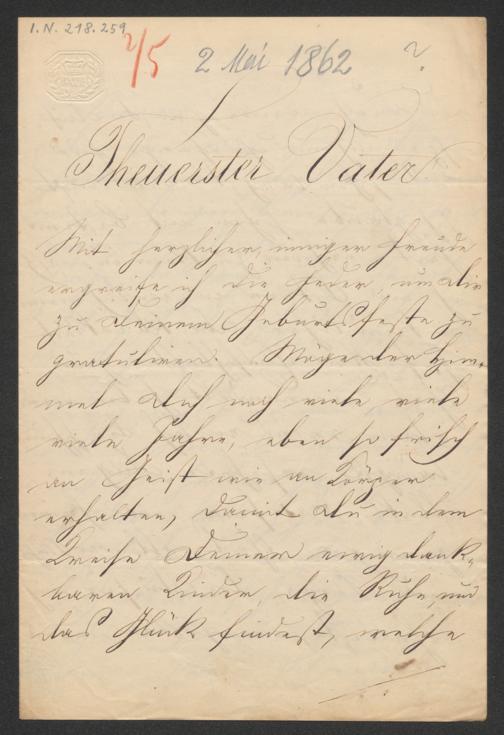 I.N. 218.259
2/5
2 Mai 1862
?
Theuerster Vater
Mit herzlicher, inniger Freude
ergreife ich die Feder, um Dir
zu Deinem Geburtsfeste zu
gratuliren. Möge der Him-
mel Dich noch viele viele
viele Jahre, eben so frisch
an Geist wie an Körper
erhalten, damit Du in dem
Kreise Deiner ewig dank-
baren Kinder, die Ruhe, und
das Glück findest, welche